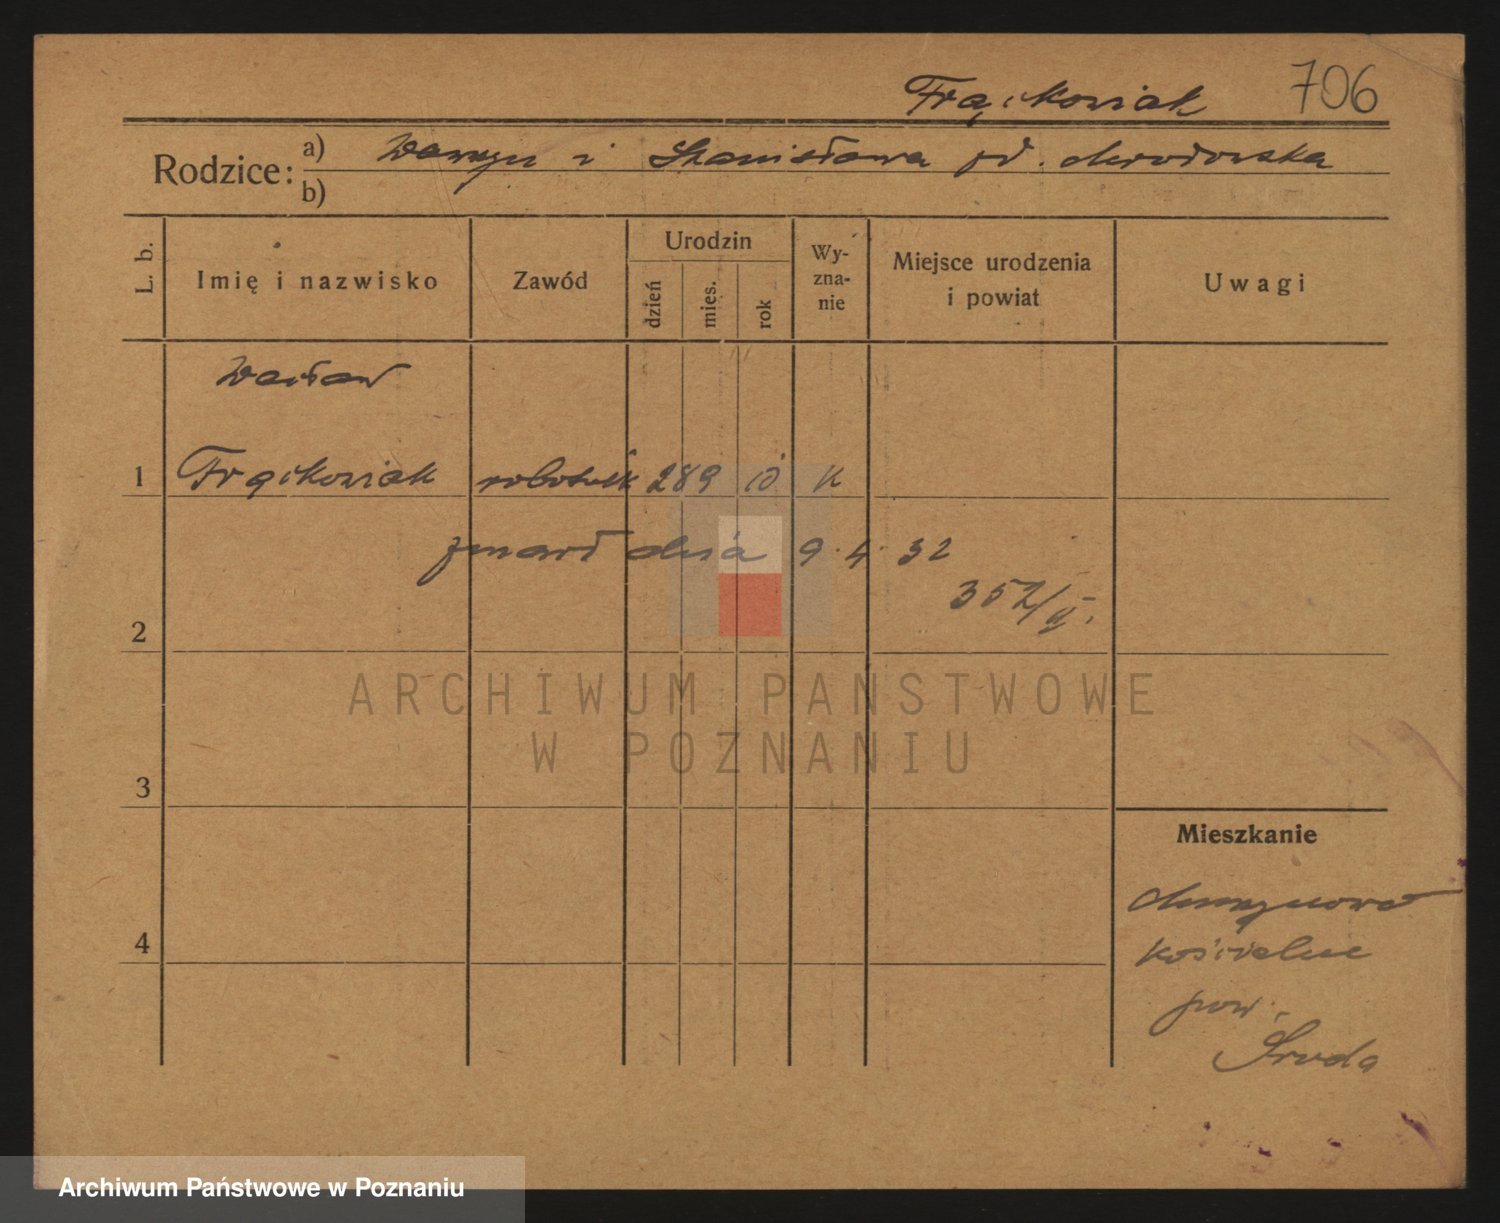 Frąckowiak 706
Rodzice: a) Wawrzyn i Stanisława
b)
L. b. Imię i nazwisko Zawód Urodzin dzień mies. rok Wy-zna-nie Miejsce urodzenia i powiat Uwagi
Wacław
1 Frąckowiak robotnik 28 9 10 k
zmarł dnia 9. 4. 32
352/II.
2
ARCHIWUM PAŃSTWOWE
W POZNANIU
3
Mieszkanie
4
kościelne
pow.
Środa
Archiwum Państwowe w Poznaniu